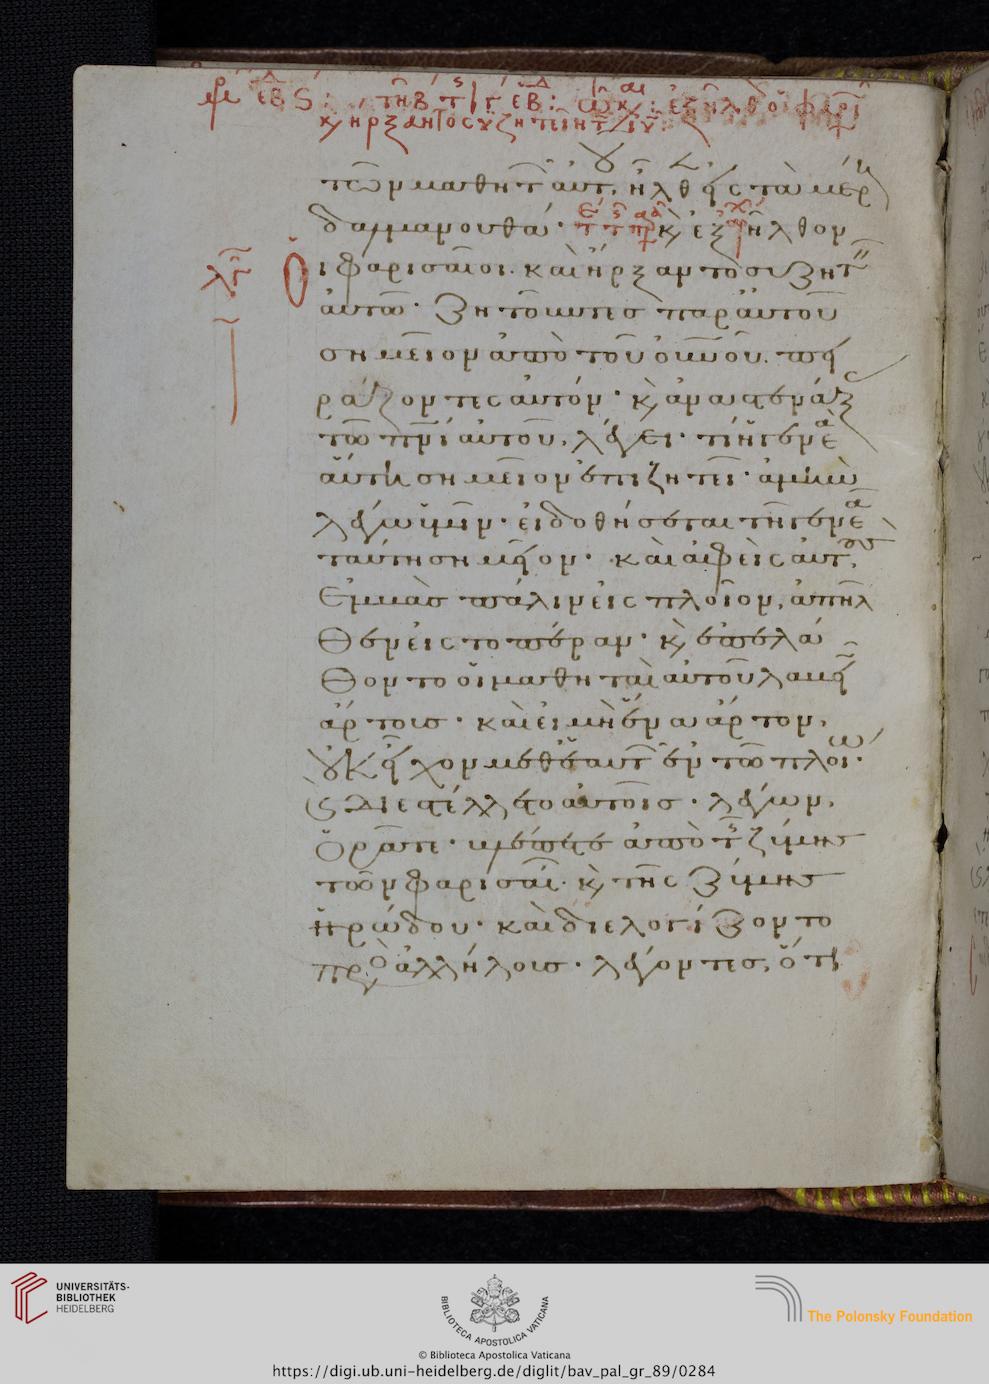 τῶν μαθητ αὐτοῦ, ἦλθεν εἰς τὰ μέρη
δαλμανουθά· κ ἐξῆλθον
Οἱ φαρισαῖοι. καὶ ἤρξαντο συζητ
αὐτῶ· ζητοῦντες παρ αὐτοῦ
σημεῖον ἀπὸ τοῦ οὐνοῦ. πει
ράζοντες αὐτόν· κ ἀναστενάξας
τῶ πνι αὐτοῦ, λέγει· τί ἡ γενεὰ
αὕτη σημεῖον ἐπιζητεῖ· ἀμὴν
λέγω ὑμῖν· εἰ δοθήσεται τῆ γενεᾶ
ταύτη σημεῖον· καὶ ἀφεὶς αὐτοὺς,
Ἐμβὰς πάλιν εἰς πλοῖον, ἀπῆλ
Θεν εἰς τὸ πέραν· κ ἐπελά
Θοντο οἱ μαθηταὶ αὐτοῦ λαβεῖν
ἄρτους· καὶ εἰ μὴ ἕνα ἄρτον,
οὐκ εἶχον μεθ ἑαυτῶν ἐν τῶ πλοίω·
κ διεστέλλετο αὐτοῖς· λέγων,
Ὁρᾶτε· βλέπετε ἀπὸ τῆς ζύμης
τῶν φαρισαί· κ τῆς ζύμης
ἡρώδου· καὶ διελογίζοντο
πρὸς ἀλλήλους· λέγοντες, ὅτι
UNIVERSITÄTS-
BIBLIOTHEK
HEIDELBERG
BIBLIOTECA APOSTOLICA VATICANA
The Polonsky Foundation
© Biblioteca Apostolica Vaticana
https://digi.ub.uni-heidelberg.de/diglit/bav_pal_gr_89/0284